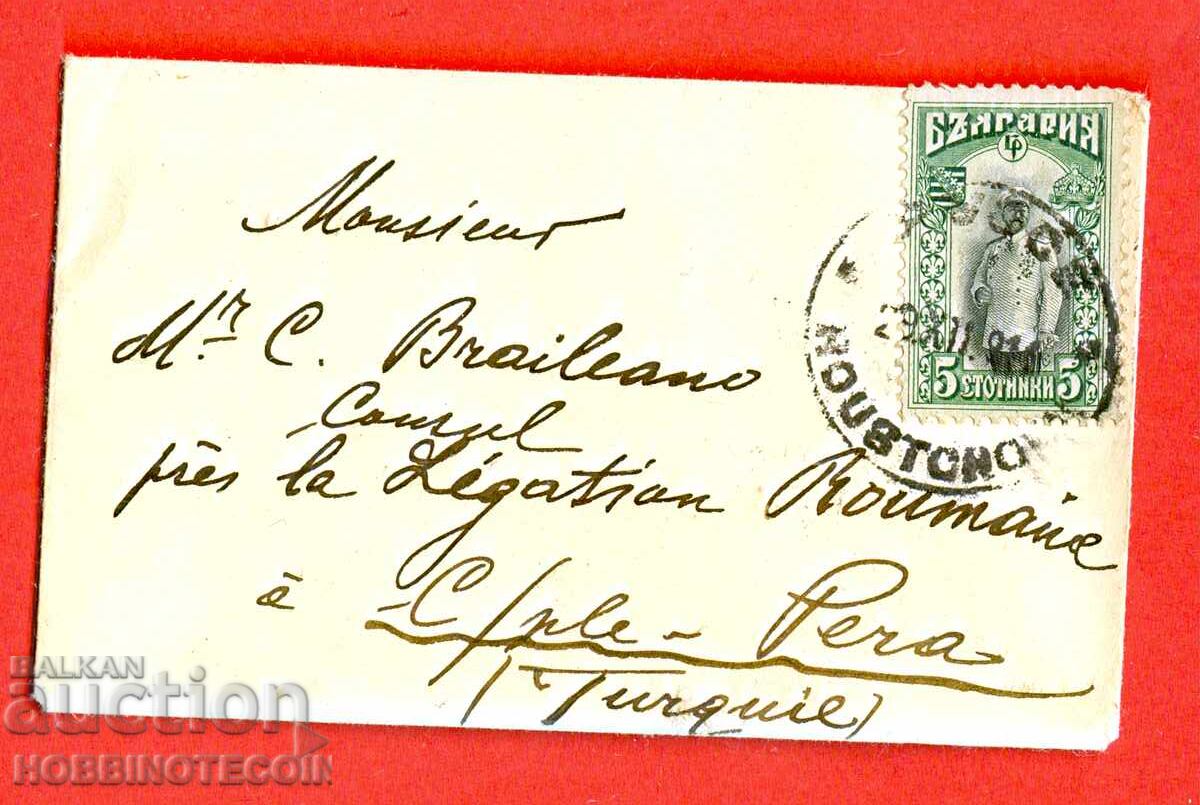 БЪЛГАРИЯ
5 СТОТИНКИ 5
Monsieur
Mr. C. Braileano
Consul
près la Légation Roumaine
à C/ple - Pera
(Turquie)
BALKAN
auction
HOBBINOTECOIN